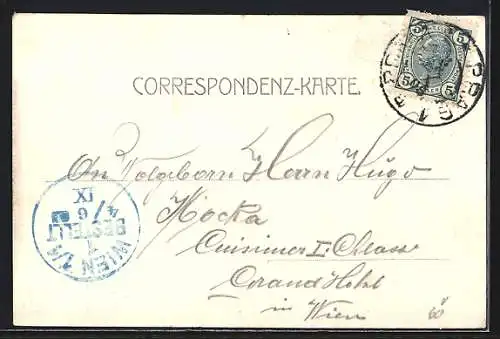 CORRESPONDENZ-KARTE.
5 5
5 5
PRAG 1
An Wolgeborn Herrn Hugo
Hocka
Cuisinier I. Classe
Grand Hotel
in Wien
60
WIEN 1/1
BESTELLT
6
4/
IX